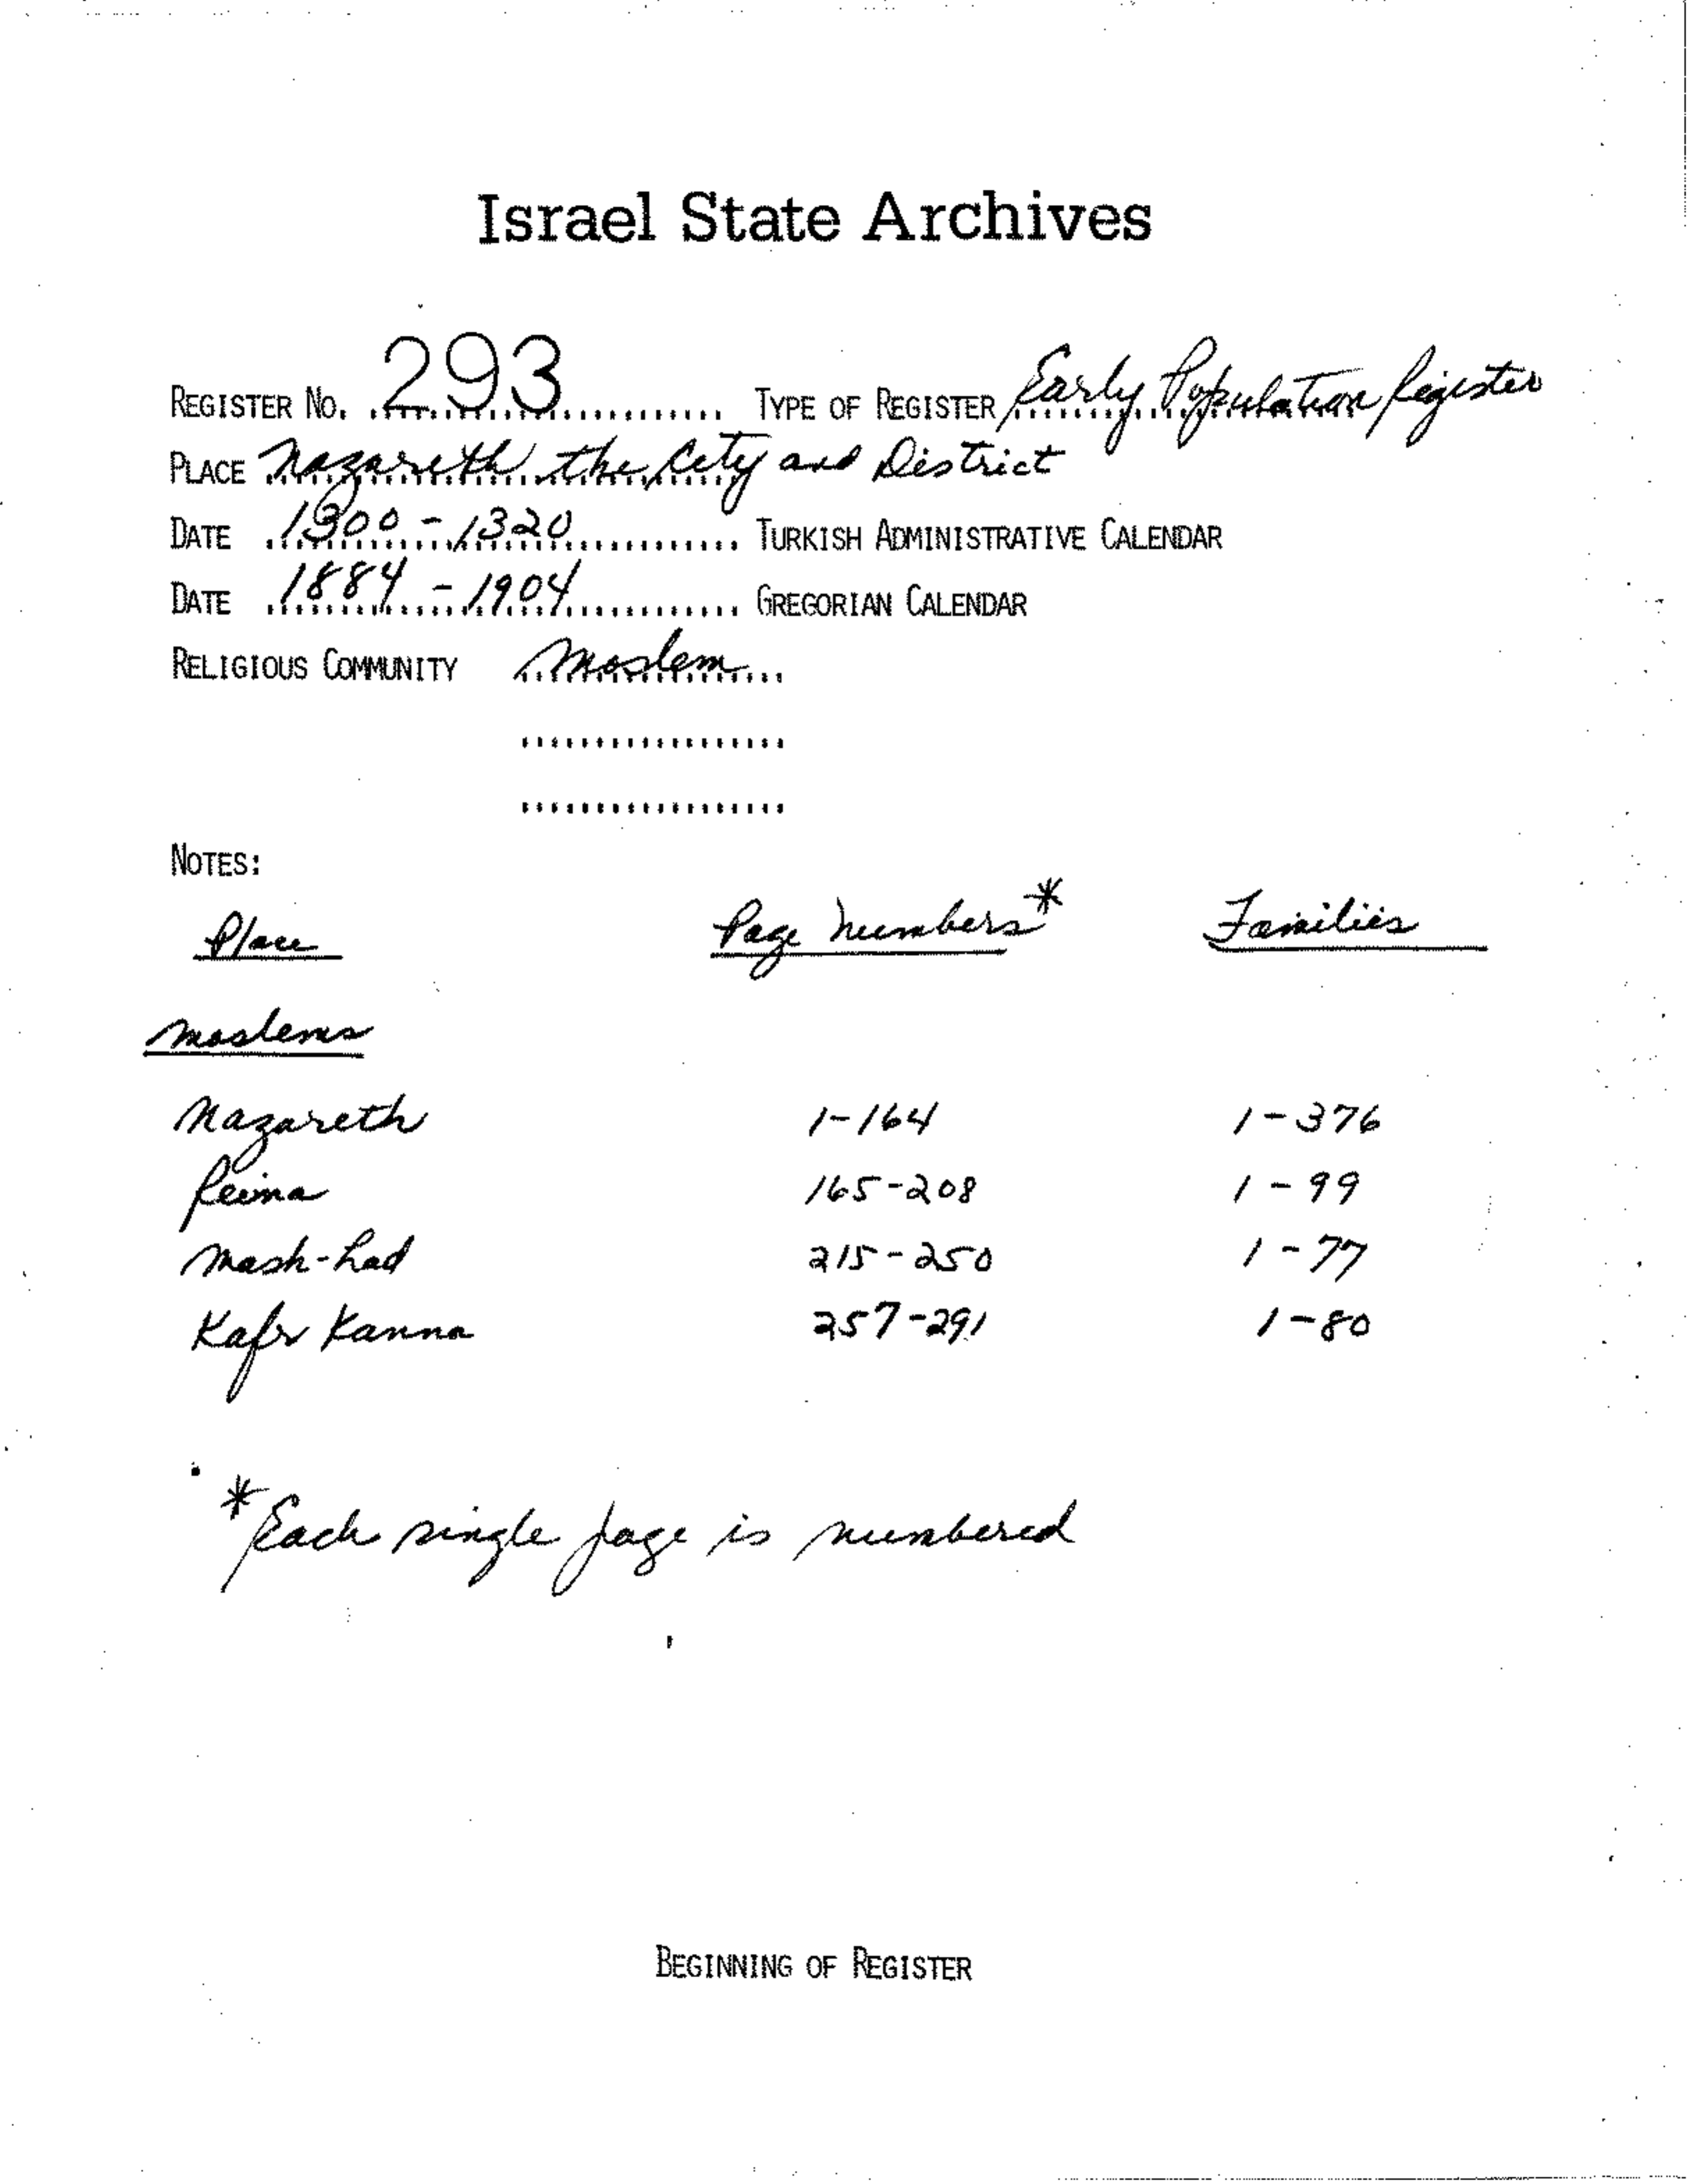 Israel State Archives
REGISTER NO. 293 TYPE OF REGISTER Early Population Register
PLACE Nazareth the City and District
DATE 1300-1320 TURKISH ADMINISTRATIVE CALENDAR
DATE 1884-1904 GREGORIAN CALENDAR
RELIGIOUS COMMUNITY Moslem
NOTES:
Place Page Numbers* Families
Moslems
Nazareth 1-164 1-376
Reina 165-208 1-99
Mash-had 215-250 1-77
Kafr Kanna 257-291 1-80
*Each single page is numbered
BEGINNING OF REGISTER